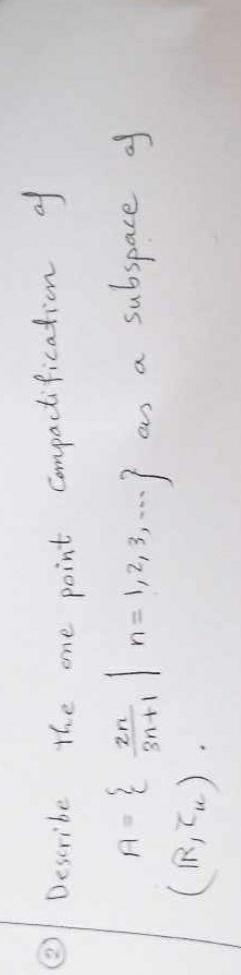 ② Describe the one point Compactification of
A = { 2n/3n+1 | n = 1, 2, 3, ... } as a subspace of
(ℝ, τᵤ).